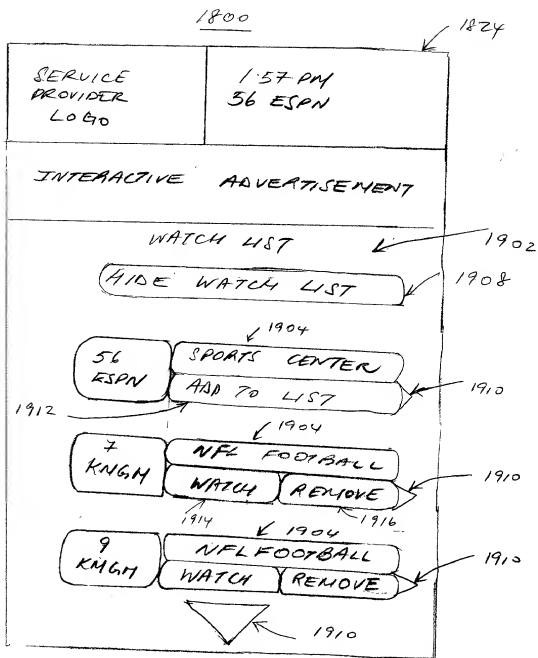 1800
1824
SERVICE
PROVIDER
LOGO
1:57 PM
56 ESPN
INTERACTIVE ADVERTISEMENT
WATCH LIST
1902
HIDE WATCH LIST
1908
1904
56
ESPN
SPORTS CENTER
ADD TO LIST
1910
1912
1904
7
KMGH
NFL FOOTBALL
WATCH
REMOVE
1910
1914
1916
1904
9
KMGH
NFL FOOTBALL
WATCH
REMOVE
1910
1910